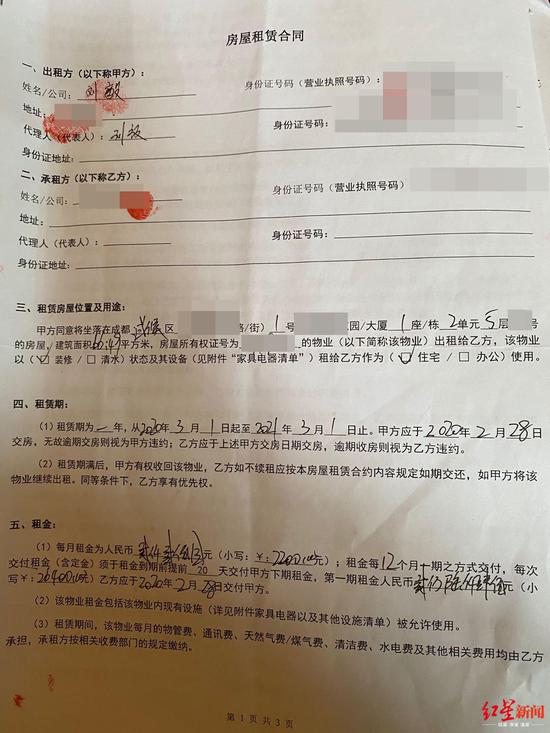 房屋租赁合同
一、出租方（以下称甲方）：
姓名/公司：刘敏 身份证号码（营业执照号码）
地址：
代理人（代表人）：刘敏 身份证号码：
身份证地址：
二、承租方（以下称乙方）：
姓名/公司： 身份证号码（营业执照号码
地址：
代理人（代表人）： 身份证号码：
身份证地址：
三、租赁房屋位置及用途：
甲方同意将坐落在成都 武侯 区 路/街）1号 家园/大厦 1 座/栋 2单元5层
的房屋，建筑面积60.49平方米，房屋所有权证号为 的物业（以下简称该物业）出租给乙方，该物业
以（√装修/□清水）状态及其设备（见附件“家具电器清单”）租给乙方作为（√住宅/□办公）使用。
四、租赁期：
（1）租赁期为一年，从2020年3月1日起至2021年3月1日止。甲方应于2020年2月28日
交房，无故逾期交房则视为甲方违约；乙方应于上述甲方交房日期交房，逾期收房则视为乙方违约。
（2）租赁期满后，甲方有权收回该物业，乙方如不续租应按本房屋租赁合约内容规定如期交还，如甲方将该
物业继续出租。同等条件下，乙方享有优先权。
五、租金：
（1）每月租金为人民币 贰仟贰佰 元（小写：￥：2200 元）；租金每12个月一期之方式交付，每次
交付租金（含定金）须于租金到期前提前 20 天交付甲方下期租金，第一期租金人民币 贰万陆仟肆佰 元（小
写：￥：26400 元）乙方应于2020年2月28日交付甲方。
（2）该物业租金包括该物业内现有设施（详见附件家具电器以及其他设施清单）被允许使用。
（3）租赁期间，该物业每月的物管费、通讯费、天然气费/煤气费、清洁费、水电费及其他相关费用均由乙方
承担，承租方按相关收费部门的规定缴纳。
第 1 页 共 3 页
红星新闻